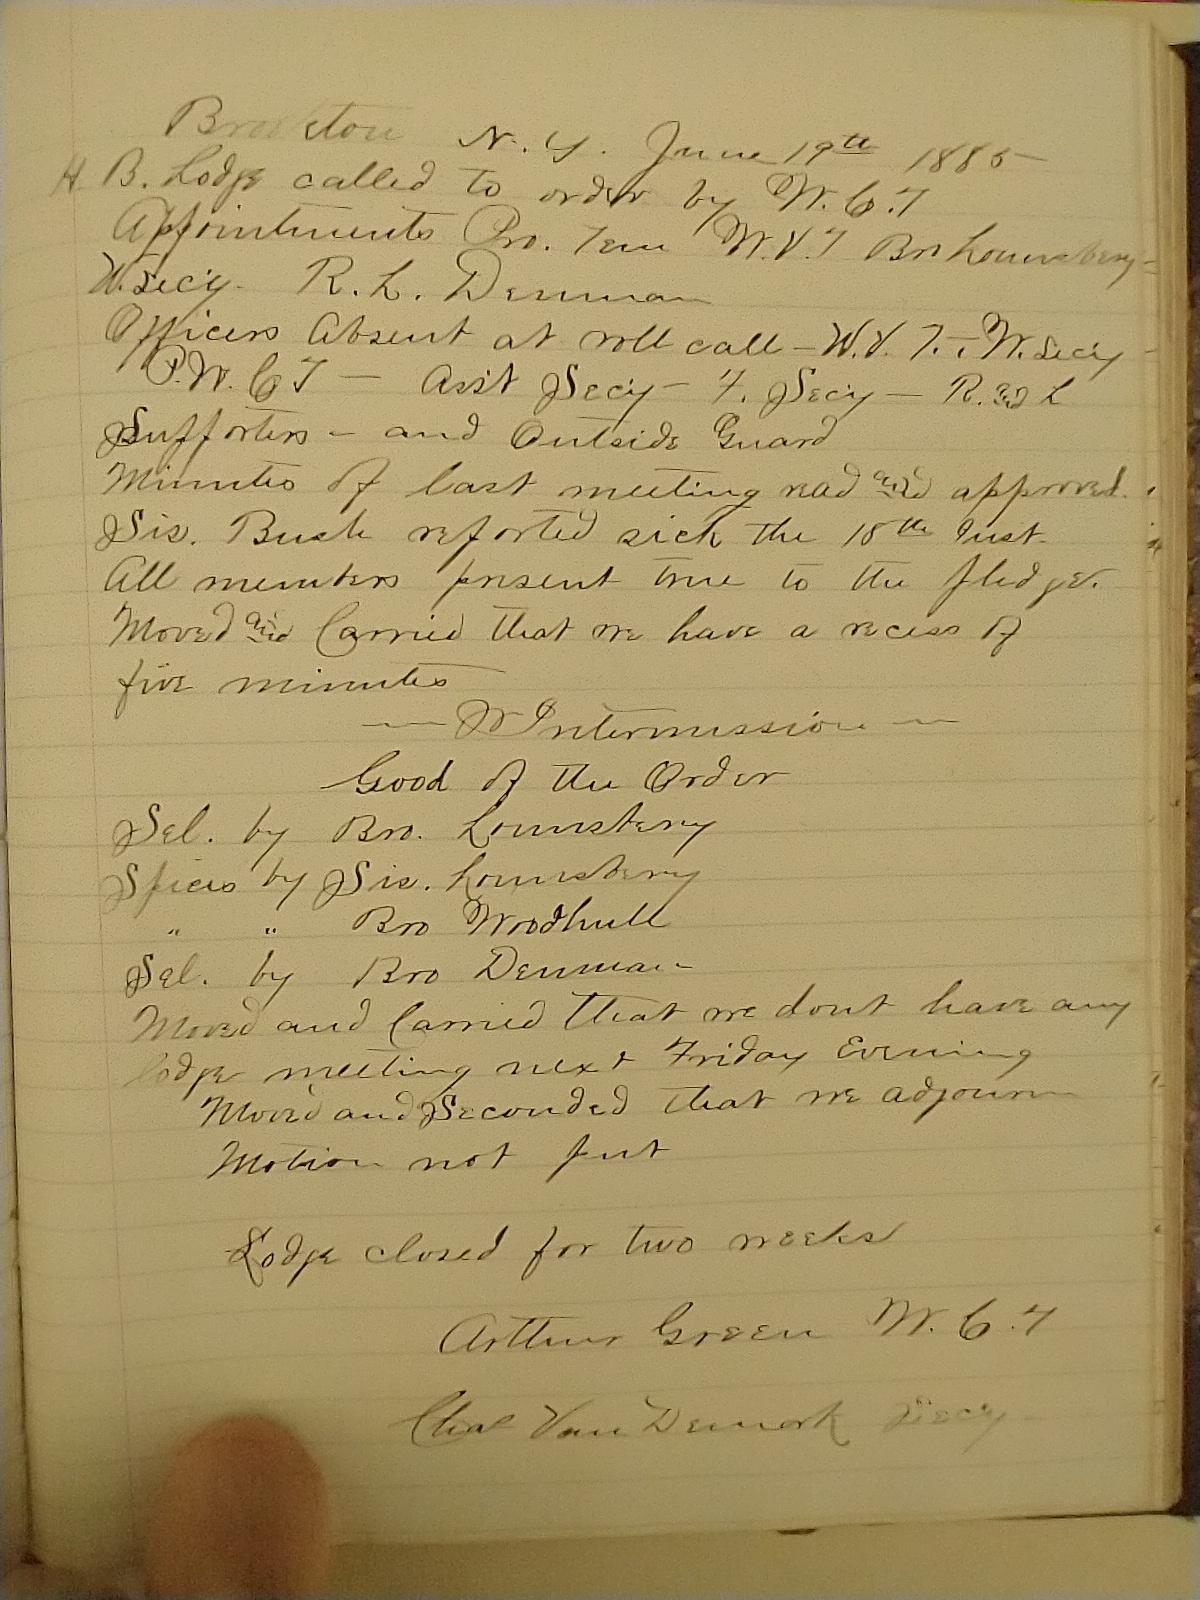 Brockton N. Y. June 19th 1885
H. B. Lodge called to order by W. C. T
Appointments Pro. Tem W. V. T Bro Lounsbery
W. Secy. R. L. Denman
Officers Absent at roll call — W. V. T. W. Secy
P. W. C T — Asst Secy — F. Secy — R. and L
Supporters — and Outside Guard
Minutes of last meeting read and approved.
Sis. Bush reported sick the 18th Inst.
All members present true to the pledge.
Moved and Carried that we have a recess of
five minutes
Intermission
Good of the Order
Sel. by Bro. Lounsbery
Spices by Sis. Lounsbery
" " Bro Woodhull
Sel. by Bro Denman
Moved and Carried that we dont have any
lodge meeting next Friday Evening
Moved and Seconded that we adjourn
Motion not put
Lodge closed for two weeks
Arthur Green W. C. T
Chas Van Demark Secy